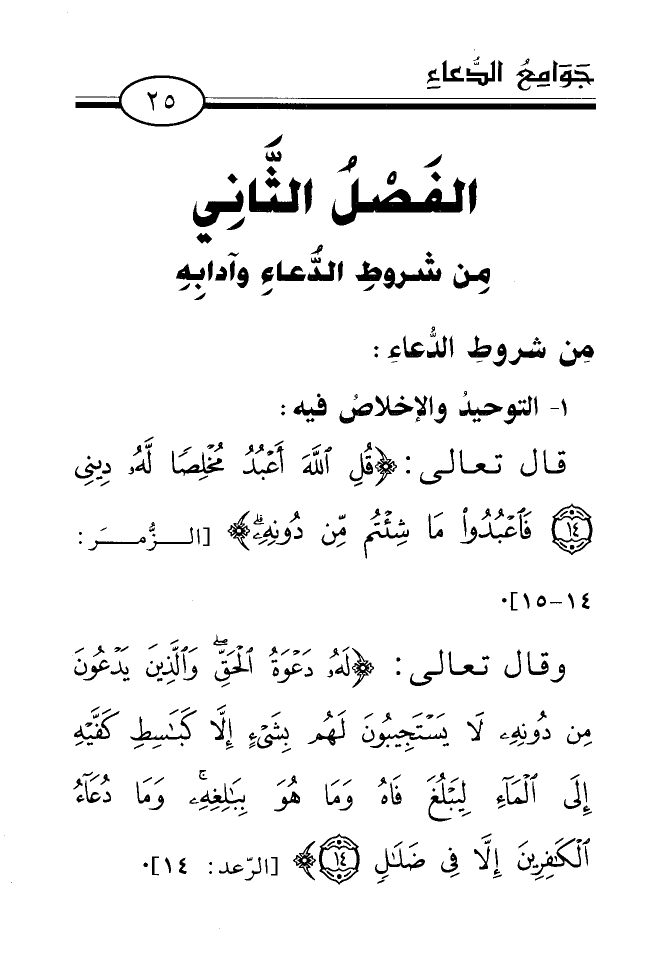 جَوَامِعُ الدُّعَاءِ
٢٥
الفَصْلُ الثَّانِي
مِن شروطِ الدُّعاءِ وآدابِهِ
مِن شروطِ الدُّعاءِ :
١- التوحيدُ والإخلاصُ فيه :
قال تعالى : ﴿قُلِ ٱللَّهَ أَعۡبُدُ مُخۡلِصٗا لَّهُۥ دِينِي
١٤ فَٱعۡبُدُواْ مَا شِئۡتُم مِّن دُونِهِۦۗ﴾ [الـزُّمـر :
١٤–١٥].
وقال تعالى : ﴿لَهُۥ دَعۡوَةُ ٱلۡحَقِّۖ وَٱلَّذِينَ يَدۡعُونَ
مِن دُونِهِۦ لَا يَسۡتَجِيبُونَ لَهُم بِشَيۡءٍ إِلَّا كَبَٰسِطِ كَفَّيۡهِ
إِلَى ٱلۡمَآءِ لِيَبۡلُغَ فَاهُ وَمَا هُوَ بِبَٰلِغِهِۦۚ وَمَا دُعَآءُ
ٱلۡكَٰفِرِينَ إِلَّا فِي ضَلَٰلٖ ١٤﴾ [الرّعد: ١٤].